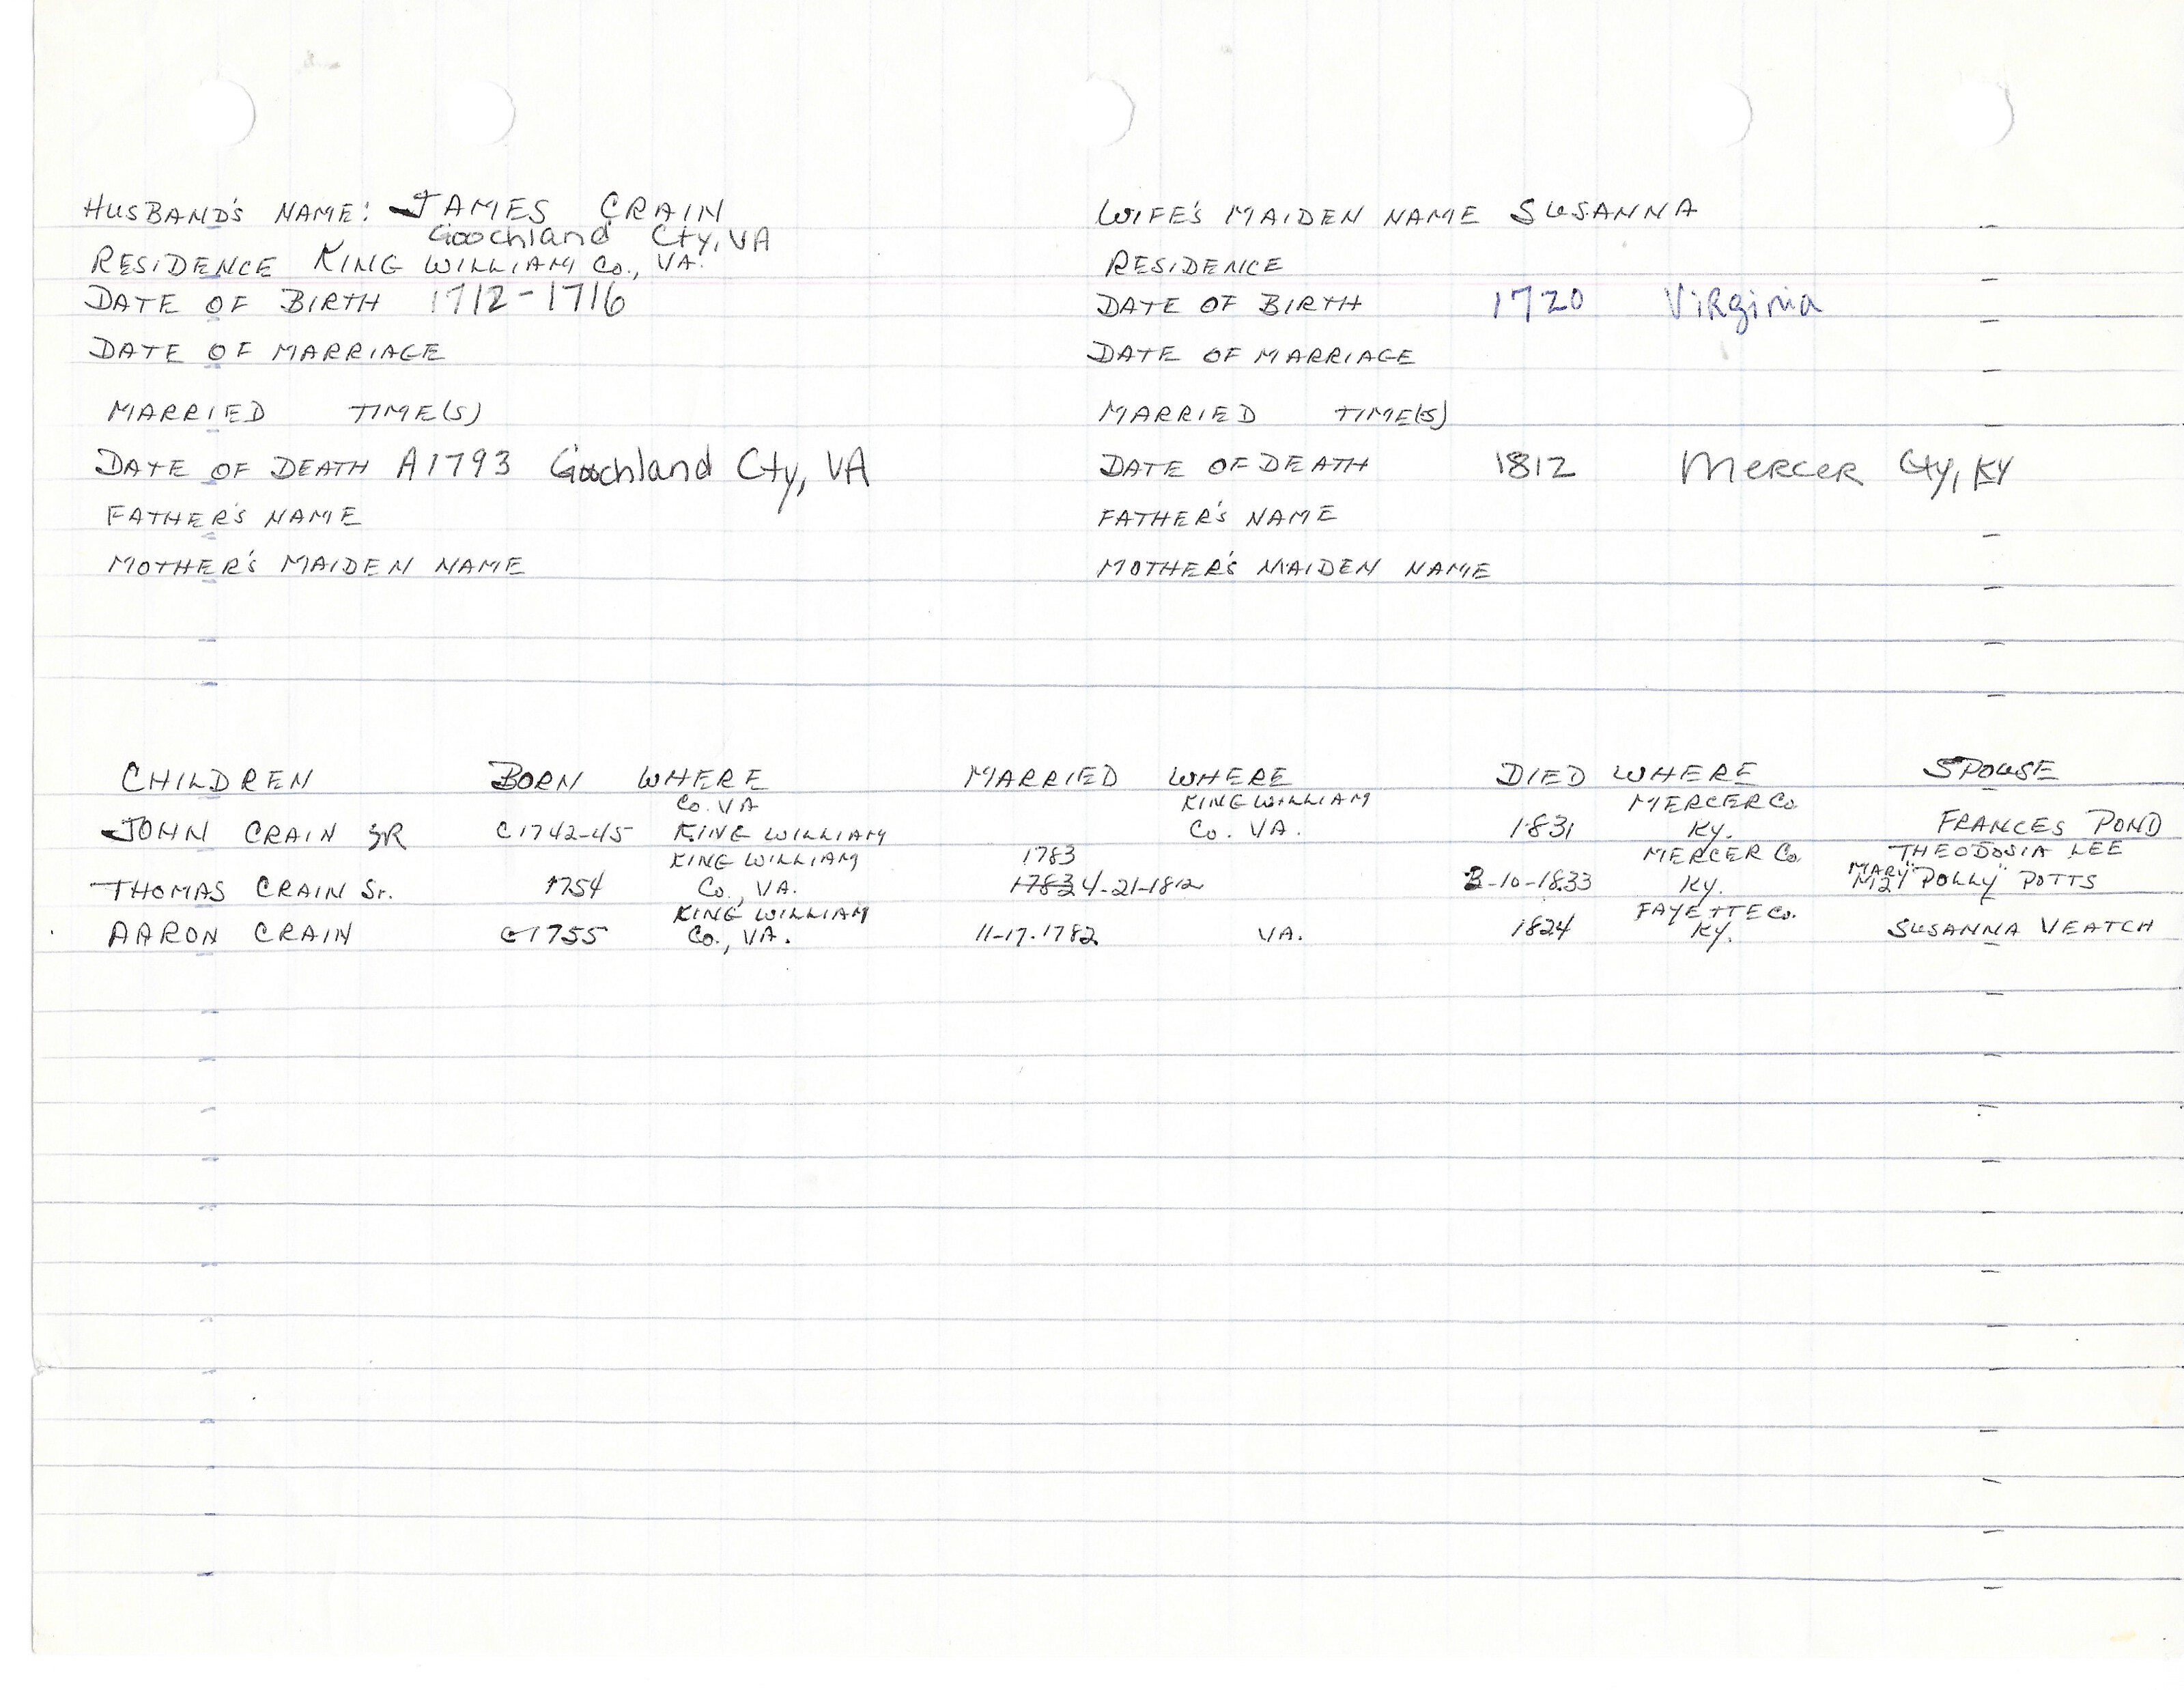 HUSBAND'S NAME: JAMES CRAIN
Goochland Cty, VA
RESIDENCE KING WILLIAM Co., VA.
DATE OF BIRTH 1712-1716
DATE OF MARRIAGE
MARRIED TIME(S)
DATE OF DEATH A1793 Goochland Cty, VA
FATHER'S NAME
MOTHER'S MAIDEN NAME
WIFE'S MAIDEN NAME SUSANNA
RESIDENCE
DATE OF BIRTH 1720 Virginia
DATE OF MARRIAGE
MARRIED TIME(S)
DATE OF DEATH 1812 MERCER Cty, KY
FATHER'S NAME
MOTHER'S MAIDEN NAME
CHILDREN BORN WHERE MARRIED WHERE DIED WHERE SPOUSE
Co. VA KING WILLIAM MERCER Co.
JOHN CRAIN SR C1742-45 KING WILLIAM Co. VA. 1831 Ky. FRANCES POND
KING WILLIAM 1783 MERCER Co. THEODOSIA LEE
THOMAS CRAIN Sr. 1754 Co., VA. 1783 4-21-1812 -10-1833 Ky. MARY "POLLY" POTTS
KING WILLIAM FAYETTE Co.
AARON CRAIN C1755 Co., VA. 11-17-1782 VA. 1824 Ky. SUSANNA VEATCH